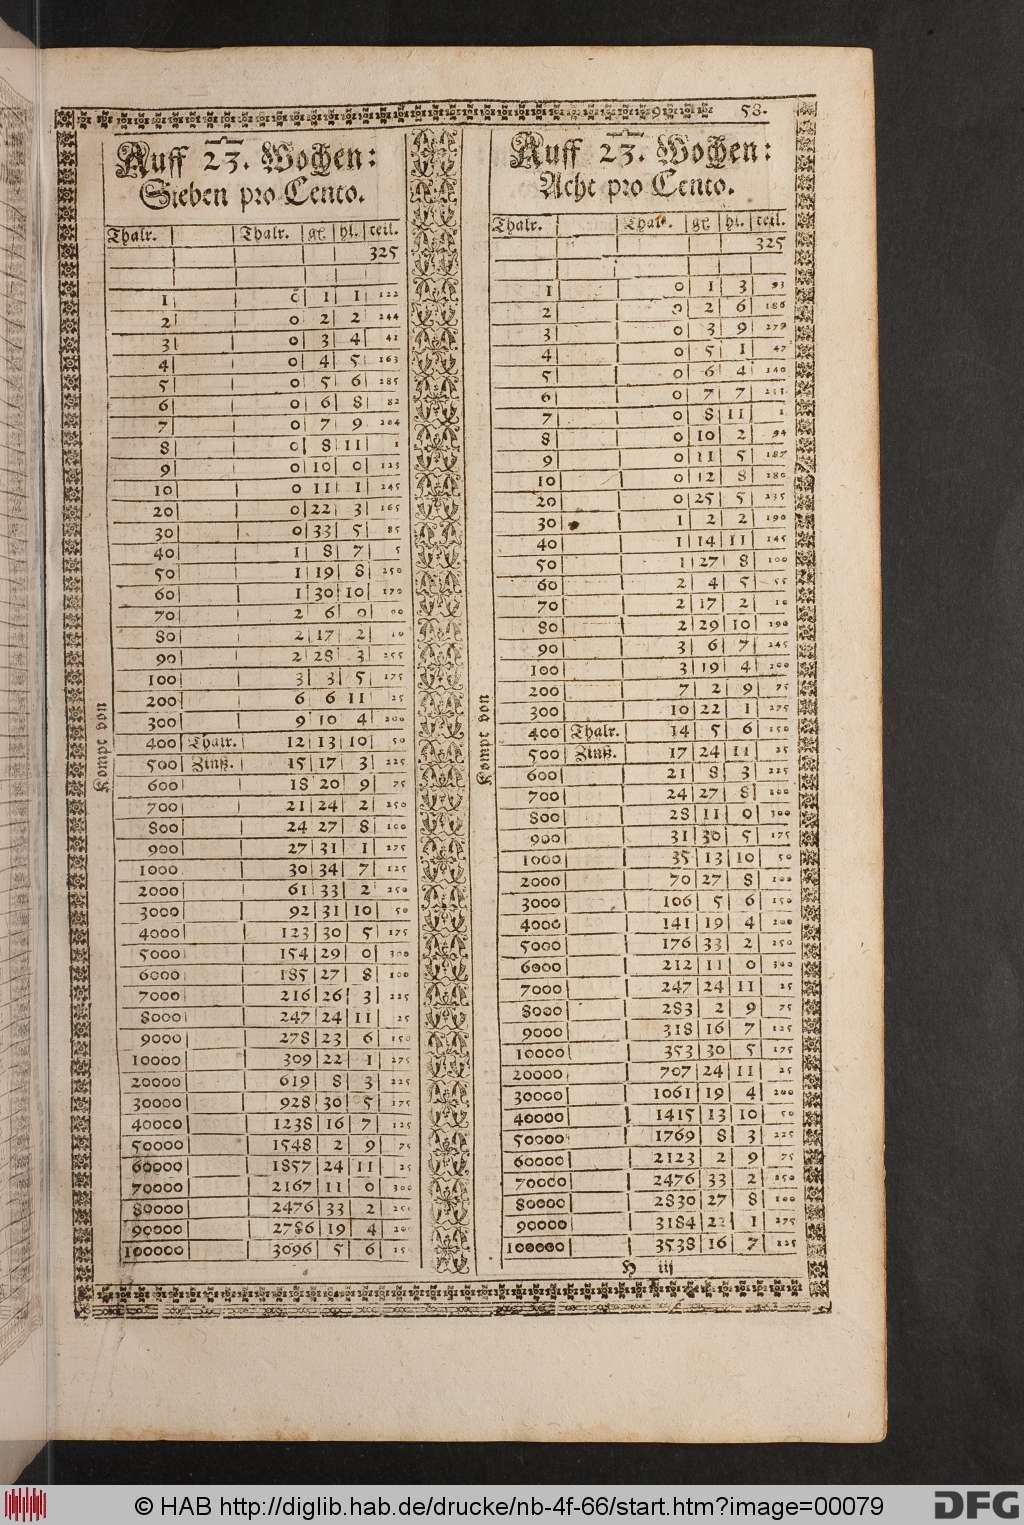 58.
Auff 23. Wochen:
Sieben pro Cento.
Thalr. Thalr. gr. hl. teil.
325
1 0 1 1 122
2 0 2 2 244
3 0 3 4 41
4 0 4 5 163
5 0 5 6 285
6 0 6 8 82
7 0 7 9 204
8 0 8 11 1
9 0 10 0 123
10 0 11 1 245
20 0 22 3 165
30 0 33 5 85
40 1 8 7 5
50 1 19 8 250
60 1 30 10 170
70 2 6 0 90
80 2 17 2 10
90 2 28 3 255
100 3 3 5 175
200 6 6 11 25
300 9 10 4 200
400 Thalr. 12 13 10 50
500 Zinß. 15 17 3 225
600 18 20 9 75
700 21 24 2 250
800 24 27 8 100
900 27 31 1 275
1000 30 34 7 125
2000 61 33 2 250
3000 92 31 10 50
4000 123 30 5 175
5000 154 29 0 300
6000 185 27 8 100
7000 216 26 3 225
8000 247 24 11 25
9000 278 23 6 150
10000 309 22 1 275
20000 619 8 3 225
30000 928 30 5 175
40000 1238 16 7 125
50000 1548 2 9 75
60000 1857 24 11 25
70000 2167 11 0 300
80000 2476 33 2 250
90000 2786 19 4 200
100000 3096 5 6 150
Kompt von
Auff 23. Wochen:
Acht pro Cento.
Thalr. Thalr. gr. hl. teil.
325
1 0 1 3 93
2 0 2 6 186
3 0 3 9 279
4 0 5 1 47
5 0 6 4 140
6 0 7 7 233
7 0 8 11 1
8 0 10 2 94
9 0 11 5 187
10 0 12 8 280
20 0 25 5 235
30 1 2 2 190
40 1 14 11 145
50 1 27 8 100
60 2 4 5 55
70 2 17 2 10
80 2 29 10 290
90 3 6 7 245
100 3 19 4 200
200 7 2 9 75
300 10 22 1 275
400 Thalr. 14 5 6 150
500 Zinß. 17 24 11 25
600 21 8 3 225
700 24 27 8 100
800 28 11 0 300
900 31 30 5 175
1000 35 13 10 50
2000 70 27 8 100
3000 106 5 6 150
4000 141 19 4 200
5000 176 33 2 250
6000 212 11 0 300
7000 247 24 11 25
8000 283 2 9 75
9000 318 16 7 125
10000 353 30 5 175
20000 707 24 11 25
30000 1061 19 4 200
40000 1415 13 10 50
50000 1769 8 3 225
60000 2123 2 9 75
70000 2476 33 2 250
80000 2830 27 8 100
90000 3184 22 1 275
100000 3538 16 7 125
Kompt von
H iij
© HAB http://diglib.hab.de/drucke/nb-4f-66/start.htm?image=00079
DFG